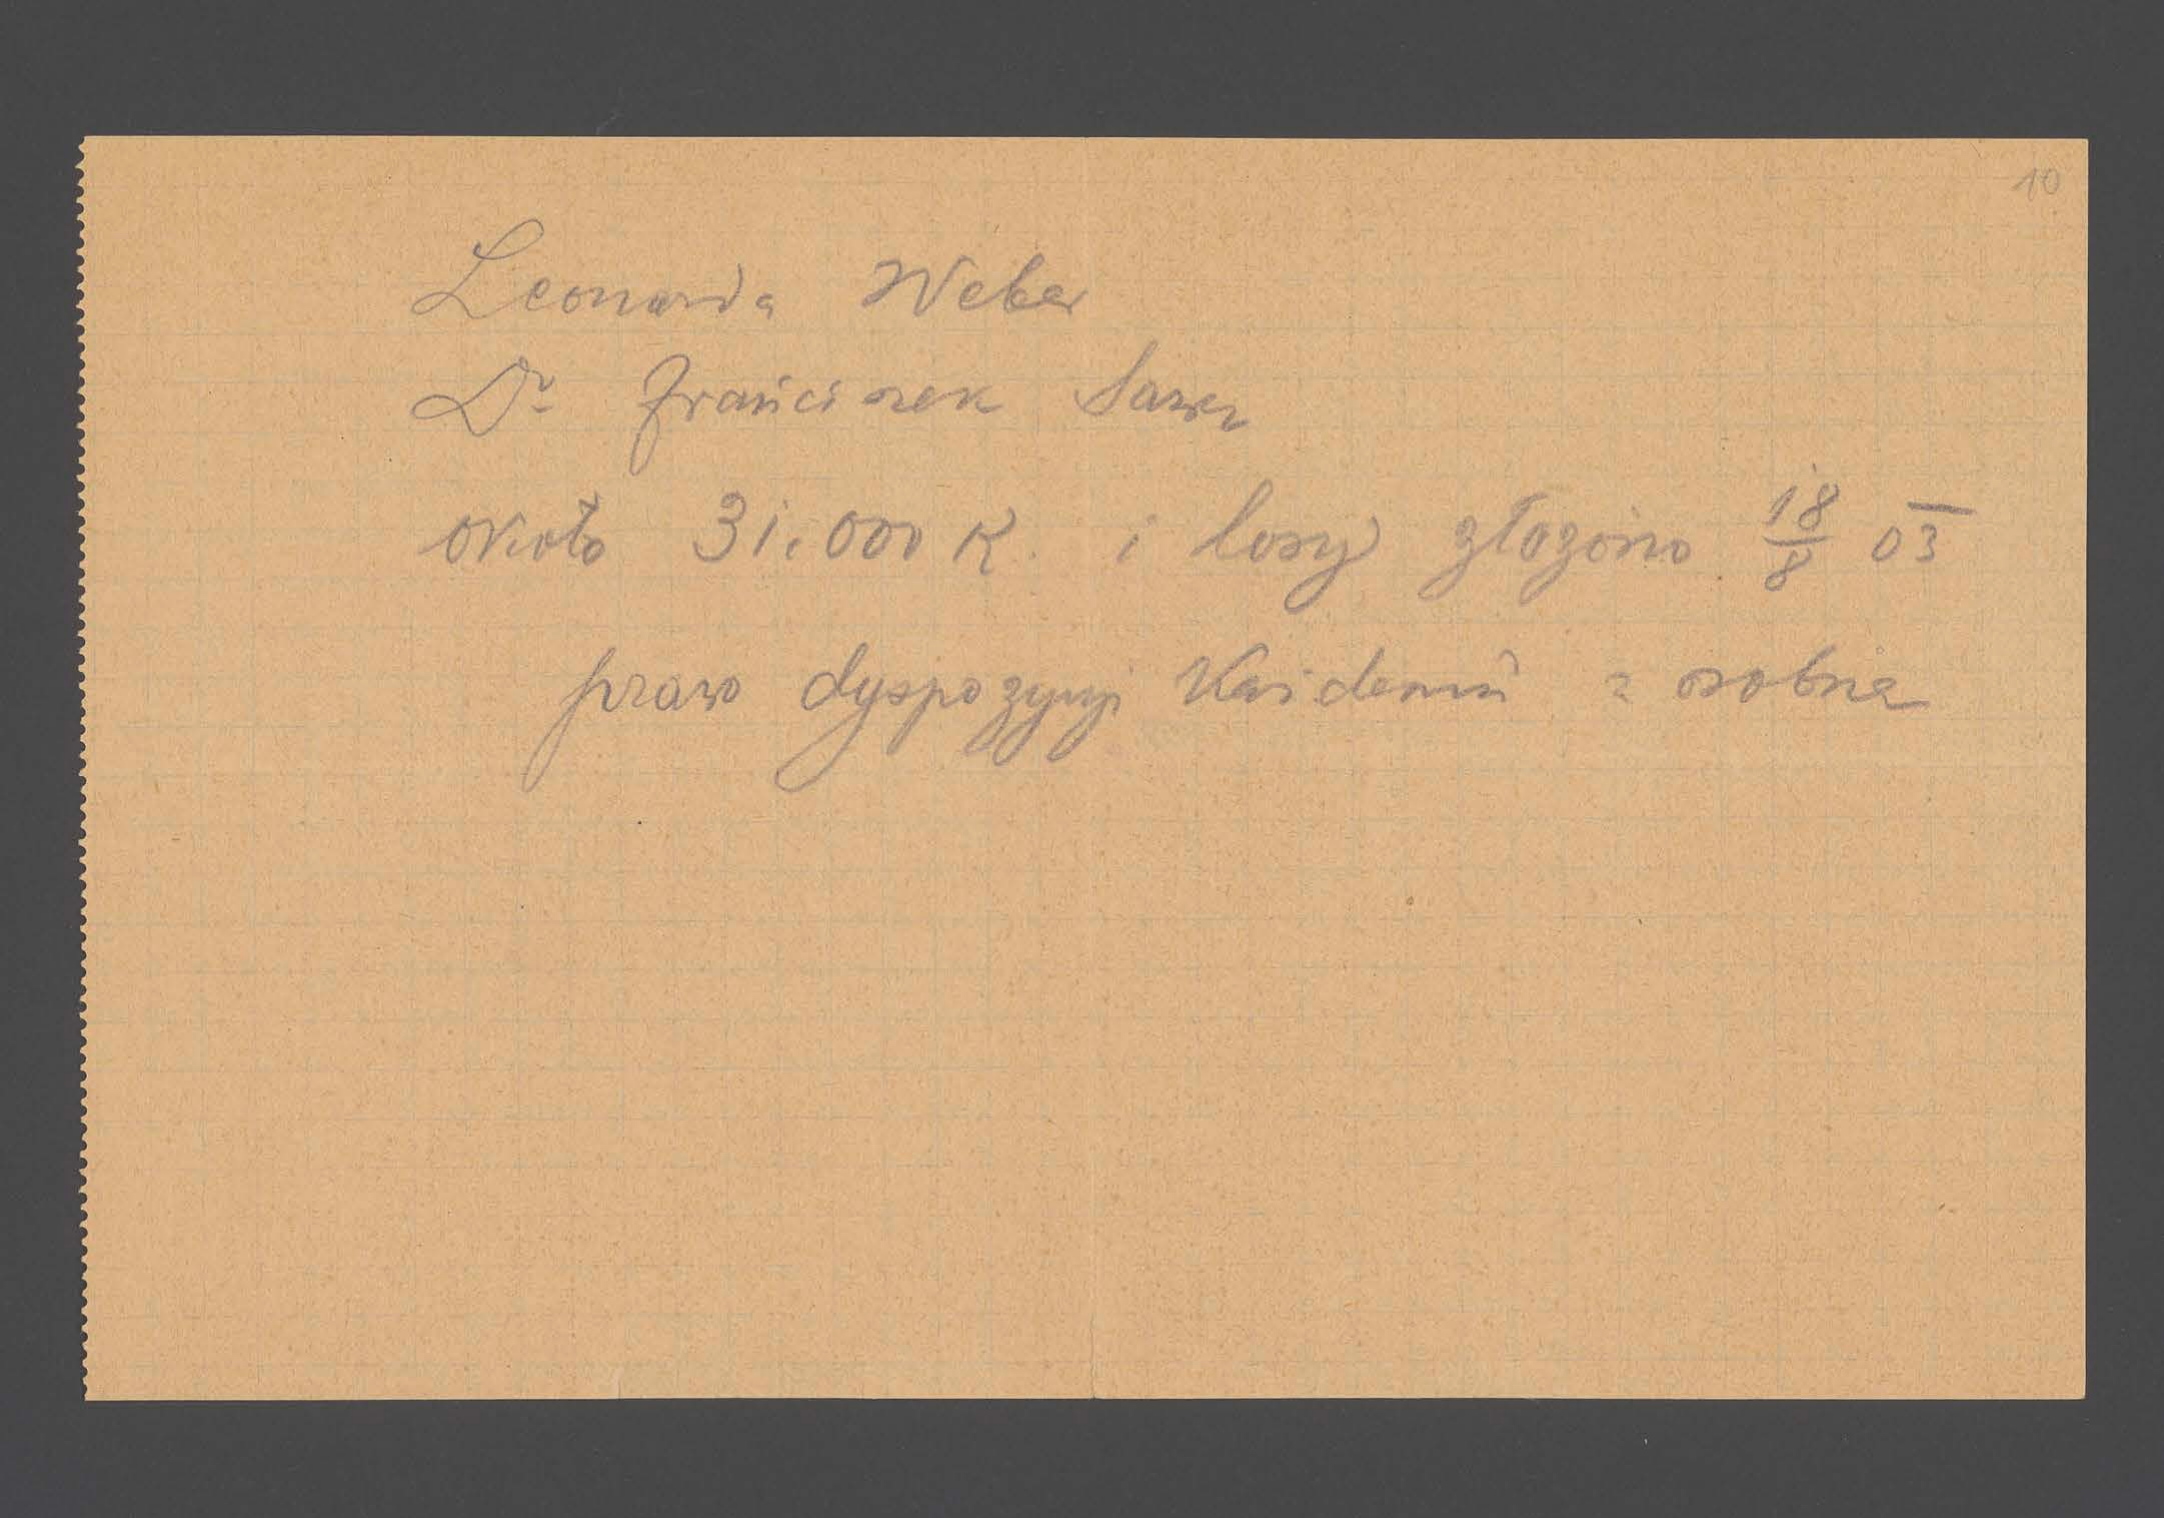 10
Leonarda Weber
Dr Franciszek
około 31.000 K. i losy złożono 18/8 03
prawo dyspozycyi każdemu z osobna